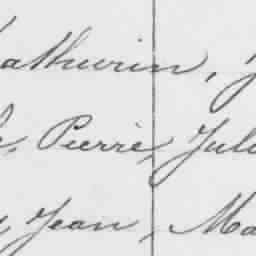 athurin, J
e, Pierre, Jul
, Jean, Ma